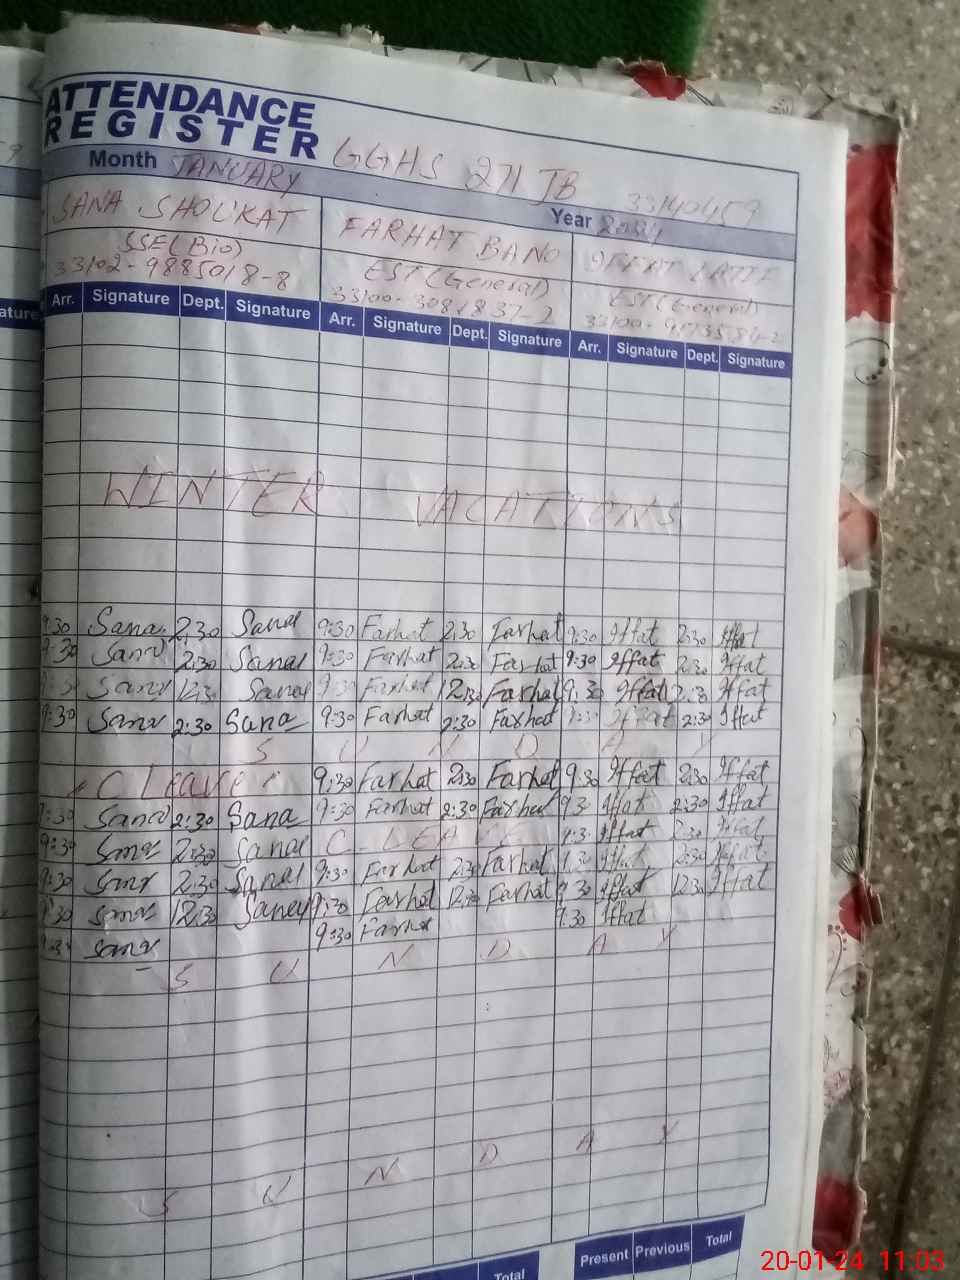 ATTENDANCE
REGISTER
GGHS 271 JB 33140459
Month JANUARY Year 2024
SANA SHOUKAT FARHAT BANO IFFAT LATIF
SSE(Bio) EST(General) EST(General)
33102-9885018-8 33100-3081837-2
Arr. Signature Dept. Signature Arr. Signature Dept. Signature Arr. Signature Dept. Signature
WINTER VACATIONS
9:30 Sana 2:30 Sana 9:30 Farhat 2:30 Farhat 9:30 Iffat 2:30 Iffat
9:30 Sana 2:30 Sana 9:30 Farhat 2:30 Farhat 9:30 Iffat 2:30 Iffat
9:30 Sana 12:30 Sana 9:30 Farhat 12:30 Farhat 9:30 Iffat 12:30 Iffat
9:30 Sana 2:30 Sana 9:30 Farhat 2:30 Farhat 9:30 Iffat 2:30 Iffat
S U N D A Y
C Leave 9:30 Farhat 2:30 Farhat 9:30 Iffat 2:30 Iffat
9:30 Sana 2:30 Sana 9:30 Farhat 2:30 Farhat 9:30 Iffat 2:30 Iffat
9:30 Sana 2:30 Sana C-LEAVE 9:30 Iffat 2:30 Iffat
9:30 Sana 2:30 Sana 9:30 Farhat 2:30 Farhat 9:30 Iffat 2:30 Iffat
9:30 Sana 12:30 Sana 9:30 Farhat 12:30 Farhat 9:30 Iffat 12:30 Iffat
9:30 Sana 9:30 Farhat 9:30 Iffat
S U N D A Y
S U N D A Y
Total Present Previous Total
20-01-24 11:03